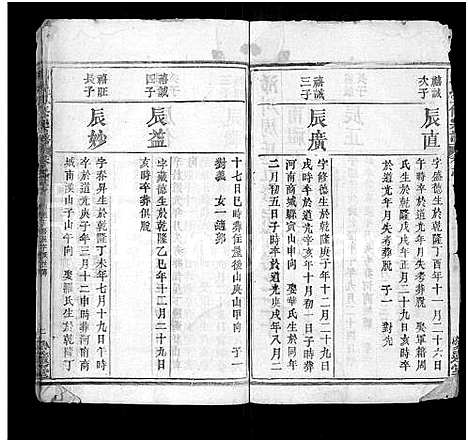 禧誠
次子
辰直
字盛德生於乾隆丁酉年十一月二十六日
時卒於道光年月失考葬 娶軍籍周
氏生於乾隆戊戌年正月二十九日亥時卒
於道光年月失考葬 子一 對先
禧誠
三子
辰廣
字修德生於乾隆庚子年十二月二十九日
戌時卒於道光辛亥年十月初一日子時葬
河南商城縣寅山申向 娶華氏生於同年
二月初五日子時卒於道光庚戌年八月二
十七日巳時葬住屋後山庚山甲向 子一
對義 女一適鄭
禧誠
四子
辰益
字藏德生於乾隆乙巳年十二月二十九日
亥時卒葬俱厥
禧旺
長子
辰妙
字春昇生於乾隆丁未年七月十九日午時
卒於道光庚子年三月十二申時葬河南商
城南溪山子山午向 娶羅氏生於乾隆丁